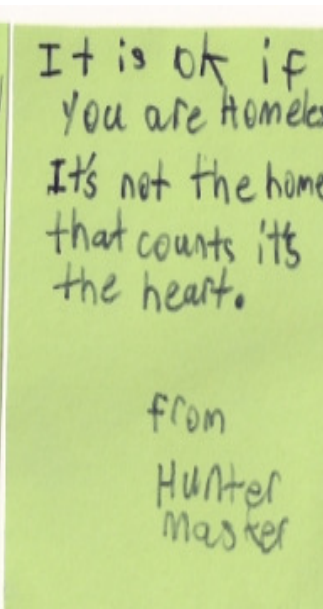 It is ok if
You are Homeles
It's not the home
that counts it's
the heart.
from
Hunter
Master